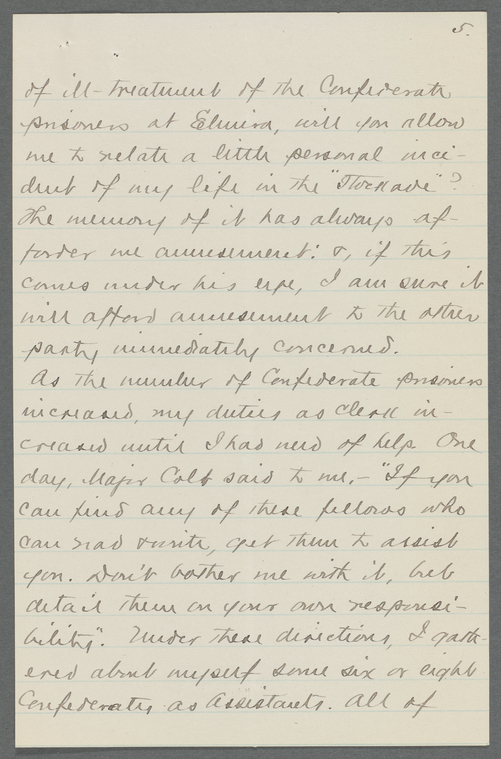 5.
of ill-treatment of the Confederate
prisoners at Elmira, will you allow
me to relate a little personal inci-
dent of my life in the "Stockade"?
The memory of it has always af-
forded me amusement: &, if this
comes under his eye, I am sure it
will afford amusement to the other
party immediately concerned.
As the number of Confederate prisoners
increased, my duties as Clerk in-
creased until I had need of help. One
day, Major Colt said to me,- "If you
can find any of these fellows who
can read & write, get them to assist
you. Don't bother me with it, but
detail them on your own responsi-
bility". Under these directions, I gath-
ered about myself some six or eight
Confederates as Assistants. All of